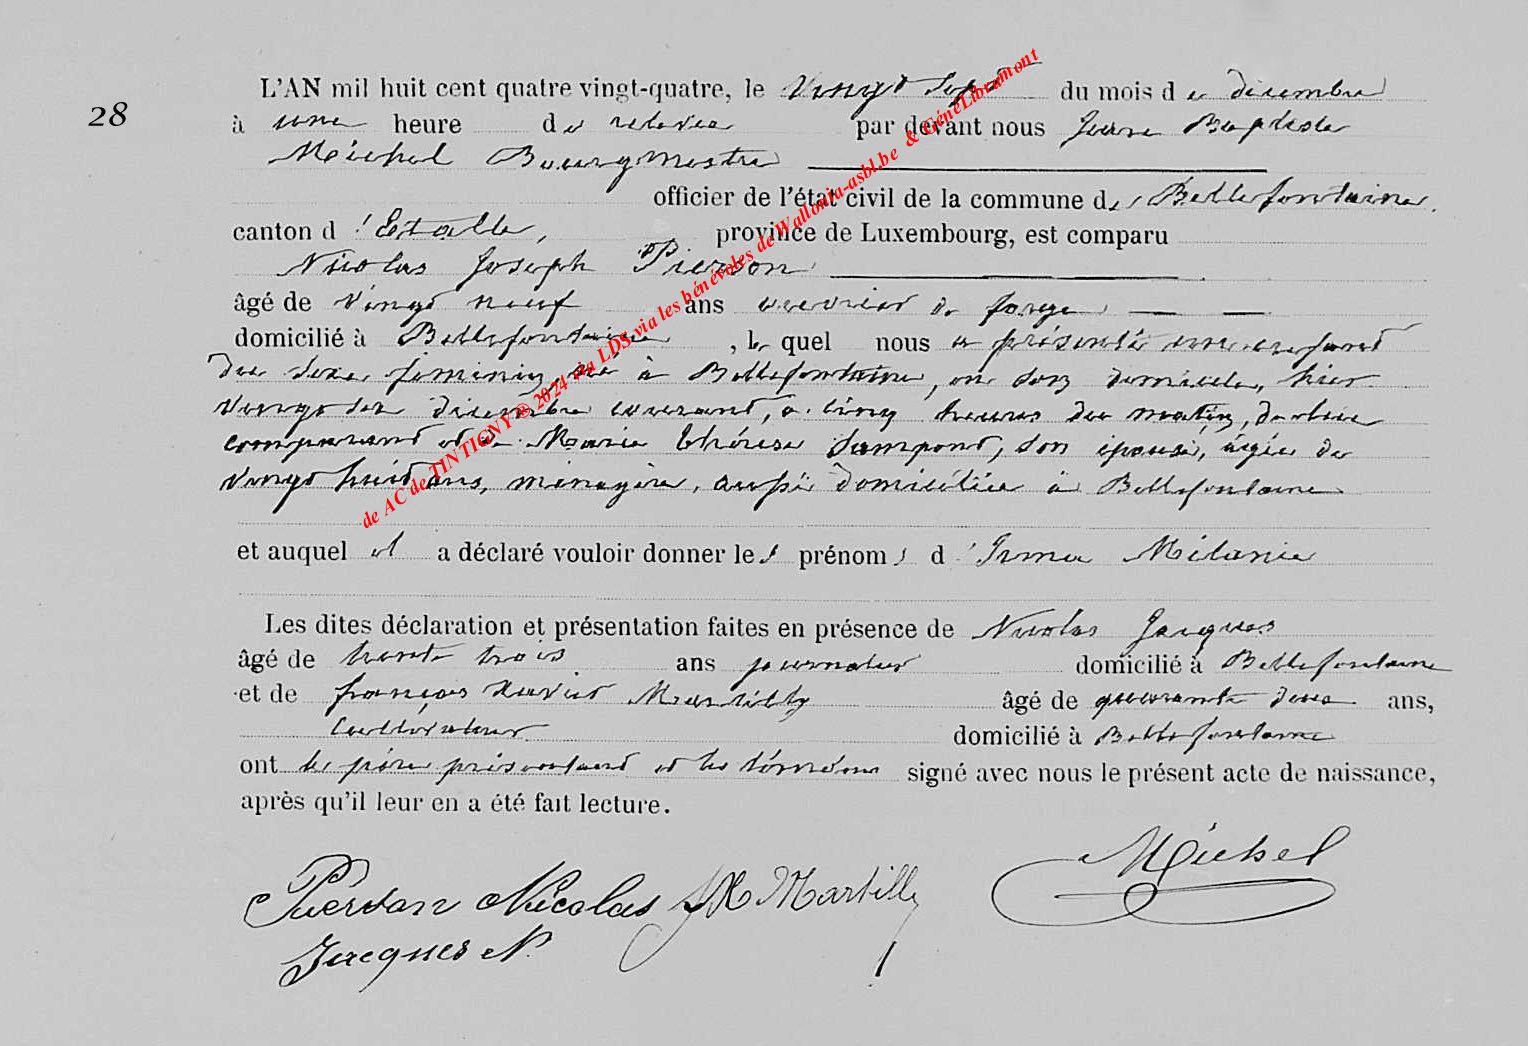 28
L'AN mil huit cent quatre vingt-quatre, le Vingt Sept du mois de décembre
à une heure de relevée par devant nous Jean Baptiste
Michel Bourgmestre
officier de l'état civil de la commune de Bellefontaine,
canton d'Etalle, province de Luxembourg, est comparu
Nicolas Joseph Pierson
âgé de Vingt neuf ans ouvrier de forge
domicilié à Bellefontaine, le quel nous a présenté un enfant
du sexe féminin, né à Bellefontaine, en son domicile, hier
Vingt six décembre courant, à cinq heures du matin, de lui
comparant et de Marie Thérèse Lampont, son épouse, âgée de
Vingt huit ans, ménagère, aussi domiciliée à Bellefontaine
et auquel il a déclaré vouloir donner les prénoms d'Irma Mélanie
Les dites déclaration et présentation faites en présence de Nicolas Jacques
âgé de trente trois ans journalier domicilié à Bellefontaine
et de françois Xavier Martilly âgé de quarante deux ans,
Cultivateur domicilié à Bellefontaine
ont le père présentant et les témoins signé avec nous le présent acte de naissance,
après qu'il leur en a été fait lecture.
Pierson Nicolas FX Martilly Michel
Jacques N.
de AC de TINTIGNY © 2024 via LDS via les bénévoles de Wallonia-asbl.be & GénéLibramont